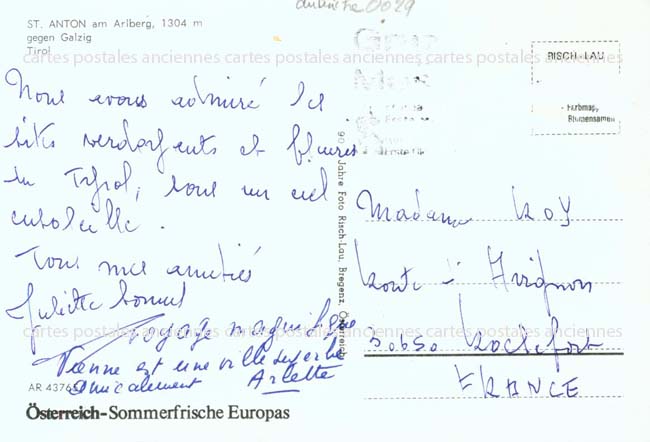 autriche 0029
ST. ANTON am Arlberg, 1304 m
gegen Galzig
Tirol
cartes postales anciennes cartes postales anciennes cartes postales anciennes
RISCH-LAU
Nous avons admiré les
sites verdoyants et fleuris
du Tyrol, sous un ciel
ensoleillé.
Tous mes amitiés
Juliette
voyage magnifique
Vienne est une ville superbe
amicalement Arlette
AR 4376
Österreich-Sommerfrische Europas
Jahre Foto Risch-Lau, Bregenz, Österreich
Farbmap,
Blumensamen
Madame ROY
Route d'Avignon
30650 Rochefort
FRANCE
cartes postales anciennes cartes postales anciennes cartes postales anciennes